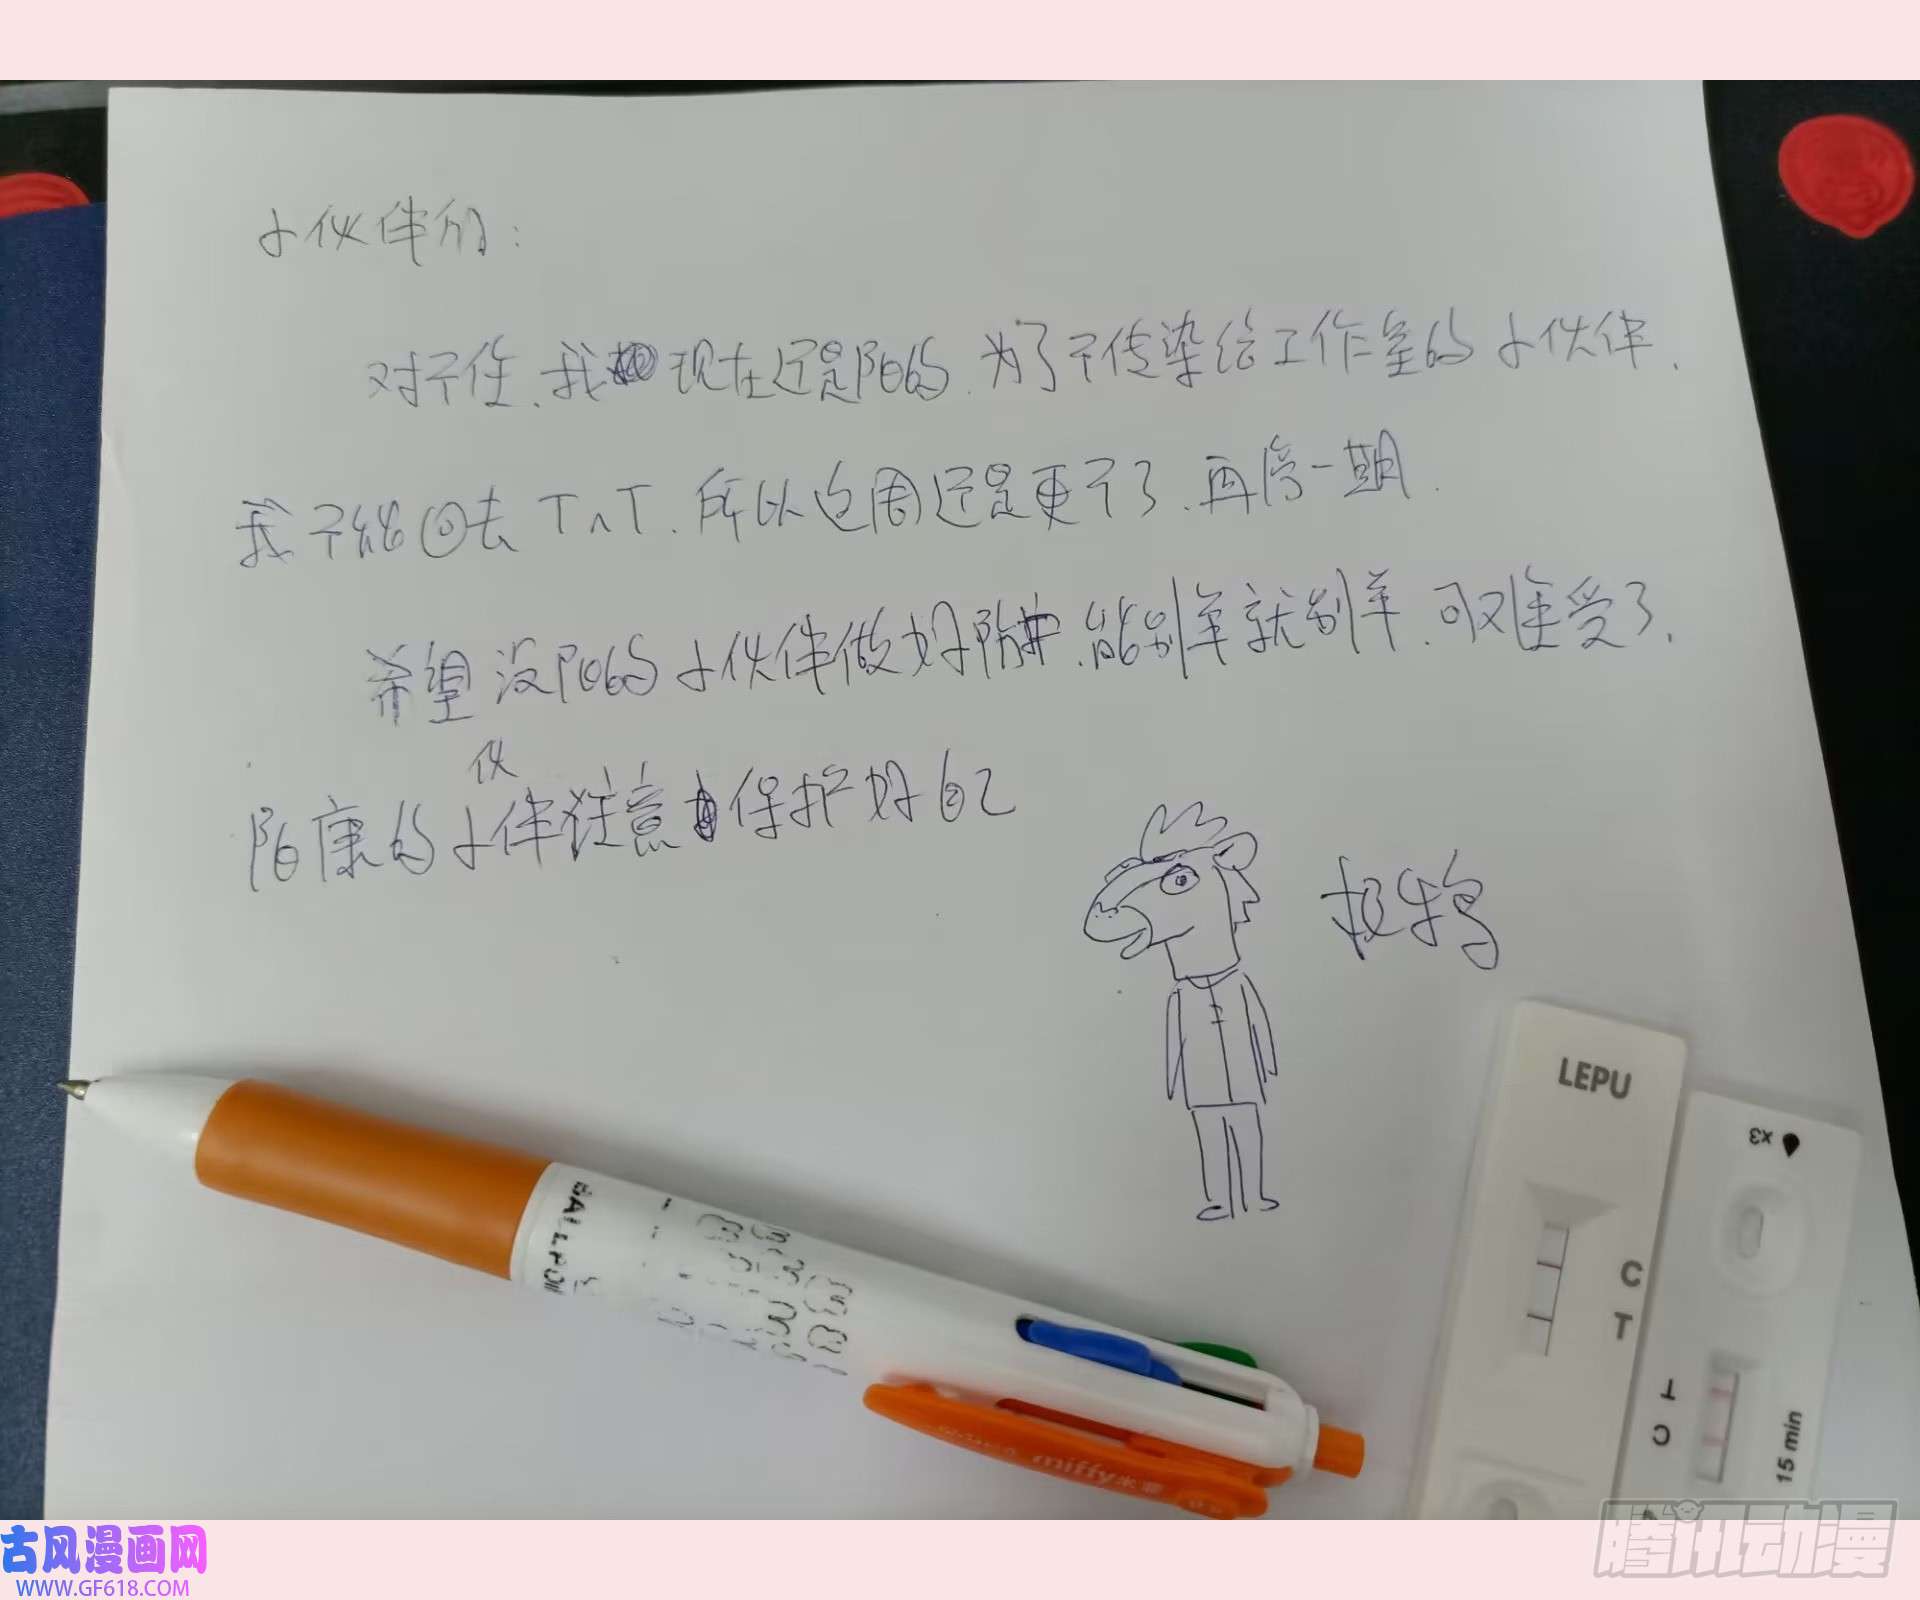 小伙伴们：
对不住、我现在还是阳的.为了不传染给工作室的小伙伴.
我不能回去TAT.所以这周还是更不了.再停一期.
希望没阳的小伙伴做好防护.能别羊就别羊.可难受了.
阳康的小伙伴注意保护好自己
LEPU
x3
C
T
T
C
15 min
miffy米菲
古风漫画网
WWW.GF618.COM
腾讯动漫